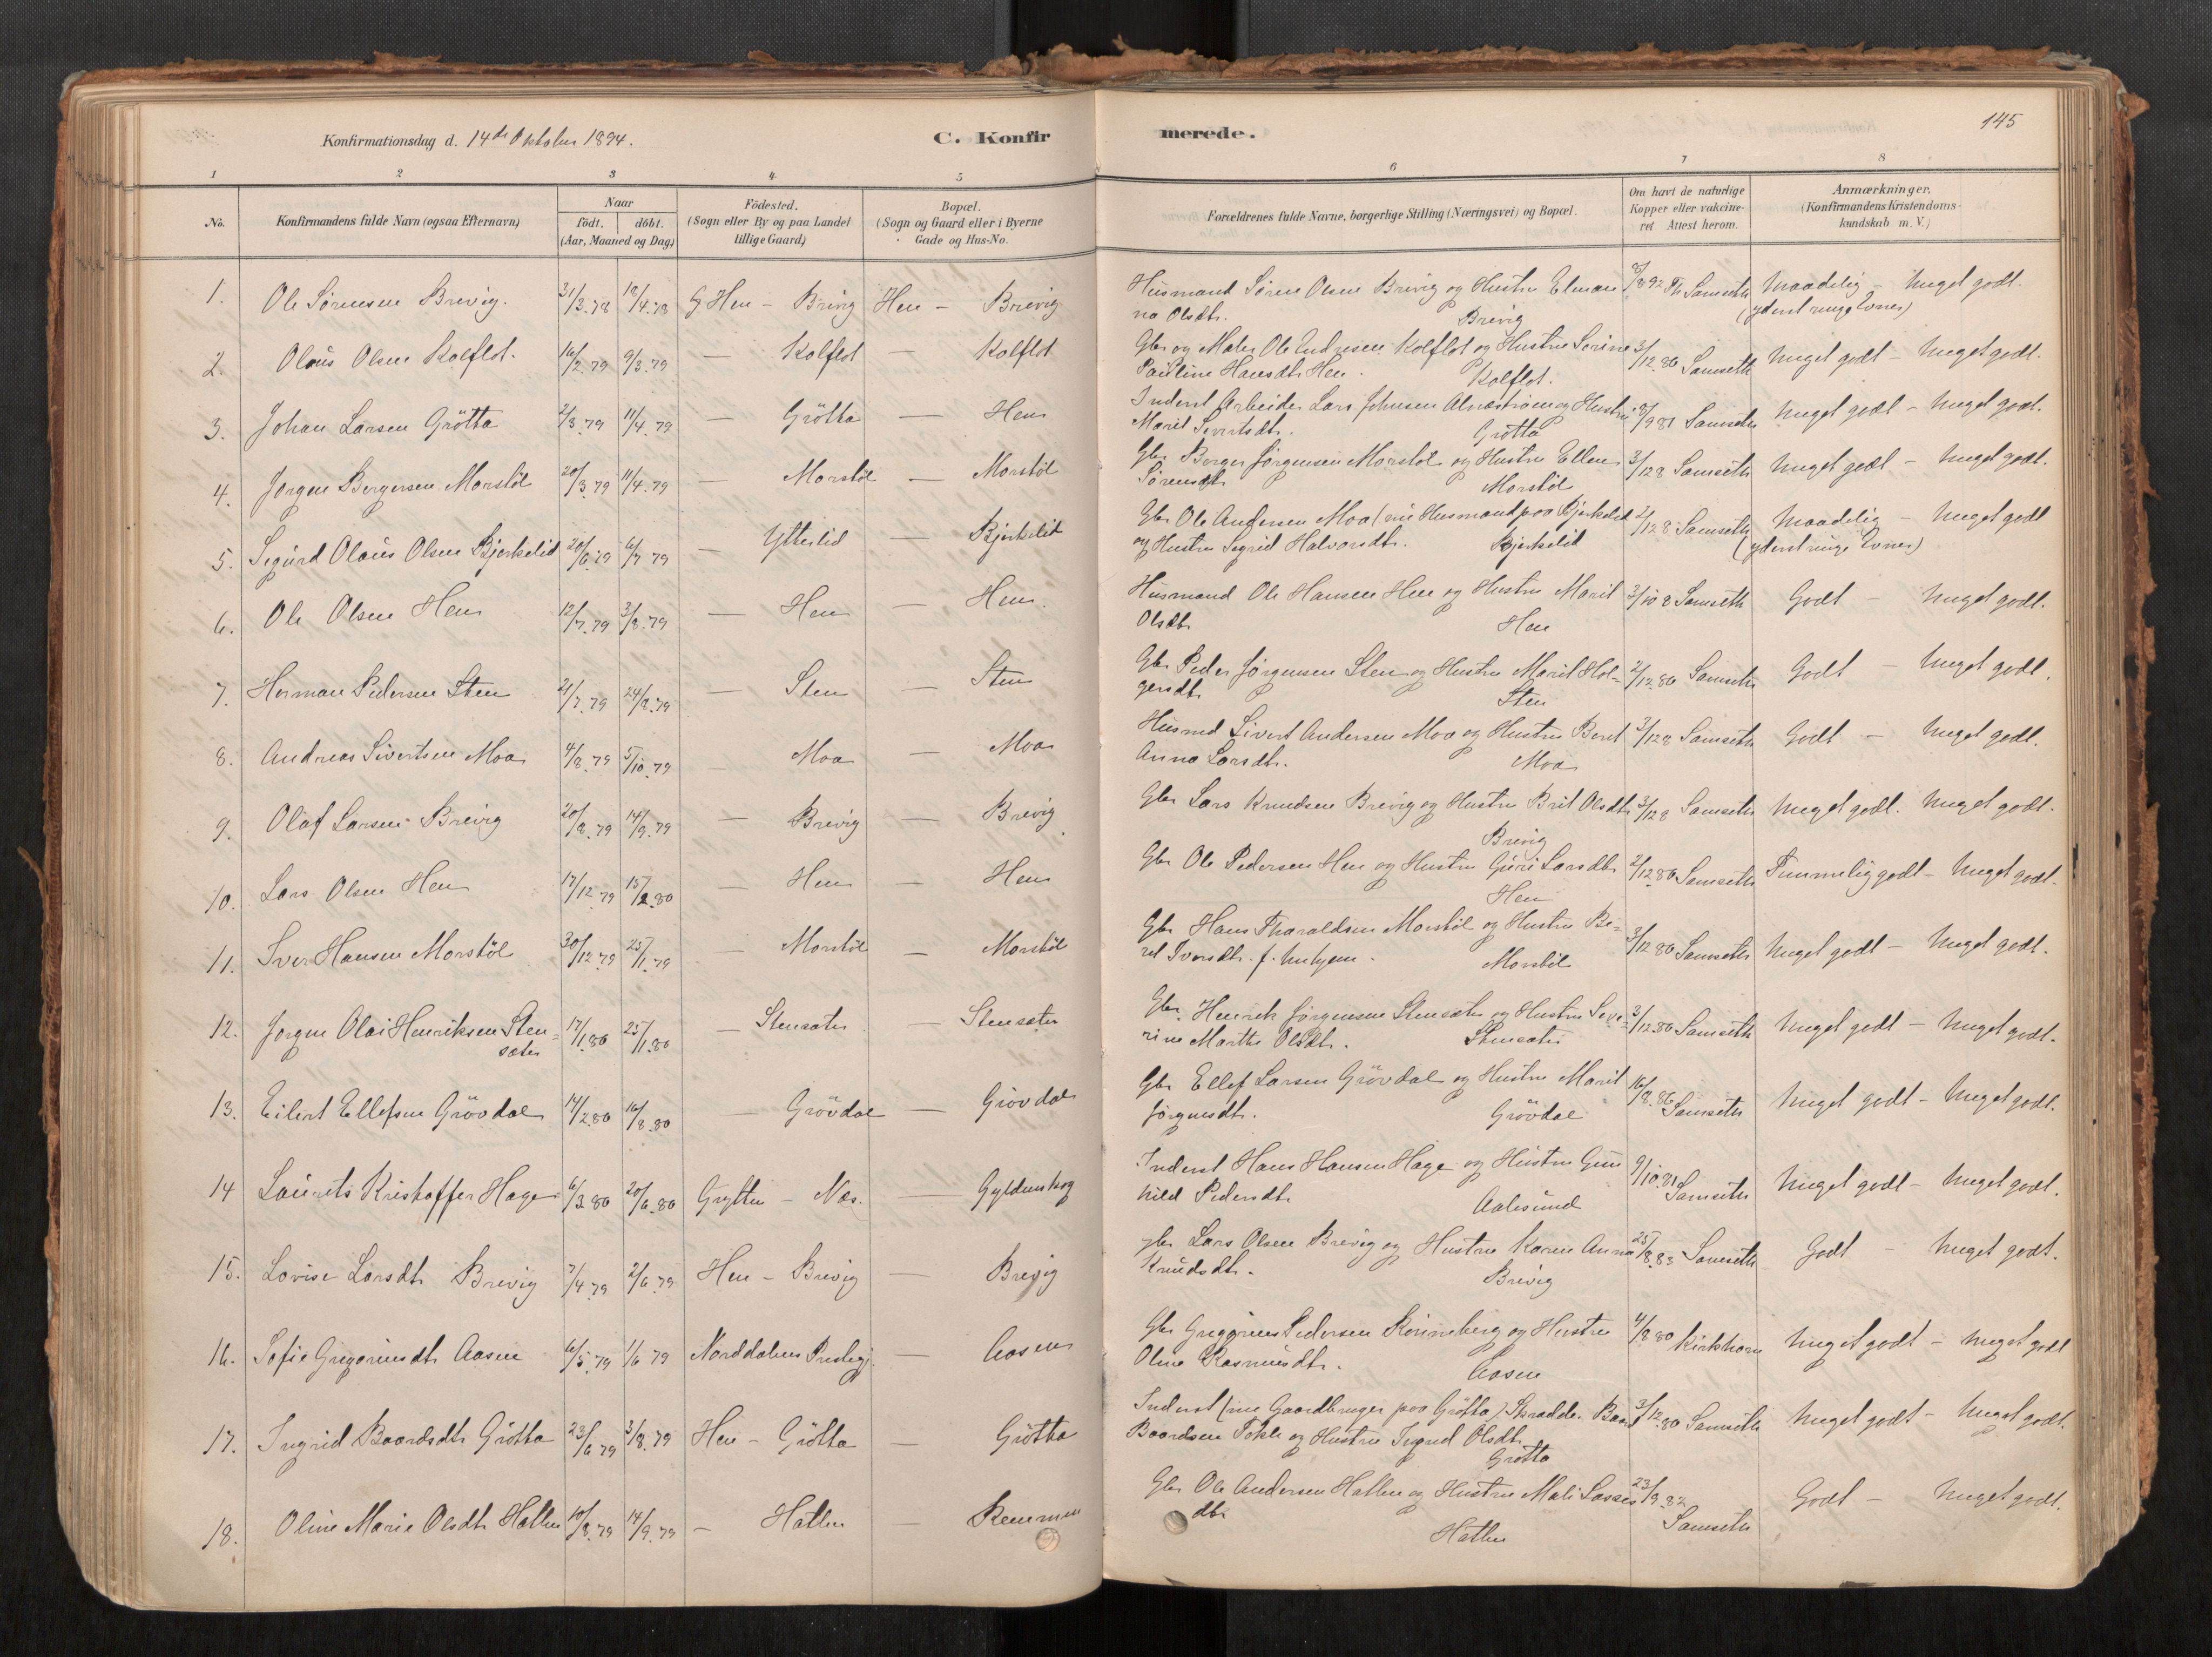 Konfirmationsdag d. 14de Oktober 1894.
C. Konfir
merede.
145
1 2 3 4 5 6 7 8
No.
Konfirmandens fulde Navn (ogsaa Efternavn)
Naar
födt. döbt.
(Aar, Maaned og Dag)
Födested.
(Sogn eller By og paa Landet
tillige Gaard)
Bopæl.
(Sogn og Gaard eller i Byerne
Gade og Hus-No.
Forældrenes fulde Navne, borgerlige Stilling (Næringsvei) og Bopæl.
Om havt de naturlige
Kopper eller vakcine-
ret. Attest herom.
Anmærkninger.
(Konfirmandens Kristendoms-
kundskab m. V.)
1. Ole Sörensen Brevig. 31/3.78 /4.78 Hen - Brevig Hen - Brevig Husmand Sören Olsen Brevig og Hustru Elman 92 Samseth Maadelig - Meget godt.
na Olsdtr. Brevig (yderst ringe Evner)
2. Olaus Olsen Kolflot. 16/2.79 9/3.79 — Kolflot — Kolflot Gbr og Maler Ole Endresen Kolflot og Hustru Serine 3/12.80 Samseth Meget godt - Meget godt.
Pauline Hansdtr Hen. Kolflot.
3. Johan Larsen Grötta 2/3.79 11/4.79 — Grötta — Hen Inderst Arbeider Lars Johnsen Alnæstrøm og Hustru /9 81 Samseth Meget godt - Meget godt.
Marit Sivertsdtr. Grötta
4. Jörgen Bergersen Morstöl 20/3.79 11/4.79 — Morstöl — Morstöl Gbr Berger Jörgensen Morstöl og Hustru Ellen 3/12 8 Samseth Meget godt - Meget godt.
Sörensdtr Morstöl
5. Sigurd Olaus Olsen Bjerkelid 20/6.79 6/7 79 — Ytterlid — Bjerkelid Gbr Ole Andersen Moa (nu Husmand paa Bjerkelid 2/12 8 Samseth Maadelig - Meget godt
og Hustru Sigrid Halvorsdtr. Bjerkelid (yderst ringe Evner)
6. Ole Olsen Hen 12/7.79 3/8.79 — Hen — Hen. Husmand Ole Hansen Hen og Hustru Marit 3/10 8 Samseth Godt - Meget godt.
Olsdtr Hen
7. Herman Pedersen Sten 21/7.79 24/8.79 — Sten — Sten Gbr Peder Jörgensen Sten og Hustru Marit Hol= 2/12.80 Samseth Godt - Meget godt.
gersdtr Sten
8. Andreas Sivertsen Moa 4/8.79 5/10.79 — Moa — Moa Husmd Sivert Andersen Moa og Hustru Beret 3/12 8 Samseth Godt - Meget godt.
Anna Larsdtr. Moa
9. Olaf Larsen Brevig 20/8.79 14/9.79 — Brevig — Brevig Gbr Lars Knudsen Brevig og Hustru Brit Olsdtr 3/12 8 Samseth Meget godt. Meget godt.
Brevig
10. Lars Olsen Hen 17/12.79 15/2.80 — Hen — Hen Gbr Ole Pedersen Hen og Hustru Guri Larsdtr 2/12 80 Samseth Temmelig godt - Meget godt.
Hen
11. Iver Hansen Morstöl 30/12.79 25/1.79 — Morstöl — Morstöl Gbr Hans Tharaldsen Morstöl og Hustru Be= 3/12 80 Samseth Meget godt - Meget godt.
ret Iversdtr. f. Morstöl
12. Jörgen Olai Henriksen Sten= 17/1.80 25/1.80 — Stensæter — Stensæter Gbr Henrik Jörgensen Stensæter og Hustru Seve= 3/12.80 Samseth Meget godt - Meget godt.
sæter rine Marthe Olsdtr. Stensæter
13. Eilert Ellefsen Grövdal 14/2.80 16/8.80 — Grövdal — Grövdal Gbr Ellef Larsen Grövdal og Hustru Marit 16/8.86 Samseth Meget godt - Meget godt.
Jörgensdtr. Grövdal
14 Laurits Kristoffer Hage 6/3.80 20/6.80 Grytten - Næs. — Gyldenskog Inderst Hans Hansen Hage og Hustru Gun 9/10.81 Samseth Meget godt - Meget godt.
hild Pedersdtr Aalesund
15. Lovise Larsdtr Brevig 7/4 79 2/6.79 Hen - Brevig — Brevig gbr Lars Olsen Brevig og Hustru Karen Anna 25/8.83 Samseth Godt - Meget godt.
Knudsdtr. Brevig
16. Sofie Gregoriusdtr Aasen 6/5.79 1/6 79 Norddalens Præstegj. — Aasen Gbr Gregorius Pedersen Rönneberg og Hustru 4/8 80 Kirkhorn Meget godt - Meget godt
Oline Rasmusdtr. Aasen
17. Ingrid Baardsdtr Grötta 23/6 79 3/8.79 Hen - Grötta — Grötta Inderst (nu Gaardbruger paa Grötta) Skrædder Baard 3/12.80 Samseth Meget godt - Meget godt.
Baardsen Tokle og Hustru Ingrid Olsdtr
Grötta
18. Oline Marie Olsdtr Hatlen 10/8.79 14/9.79 — Hatlen — Remmem Gbr Ole Andersen Hatlen og Hustru Mali Lasses 23/9.82 Samseth Godt - Meget godt.
dtr Hatlen